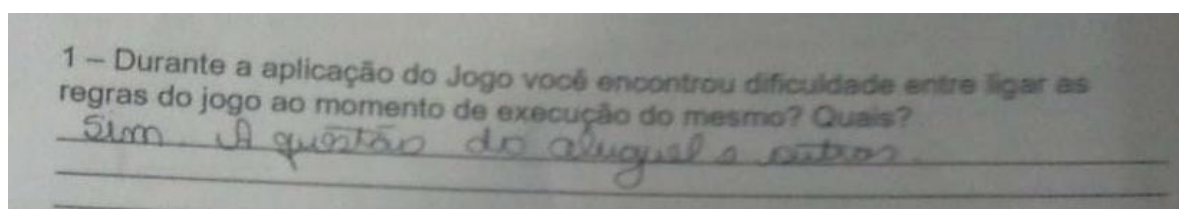 1 – Durante a aplicação do Jogo você encontrou dificuldade entre ligar as
regras do jogo ao momento de execução do mesmo? Quais?
Sim. A questão do aluguel e outros.